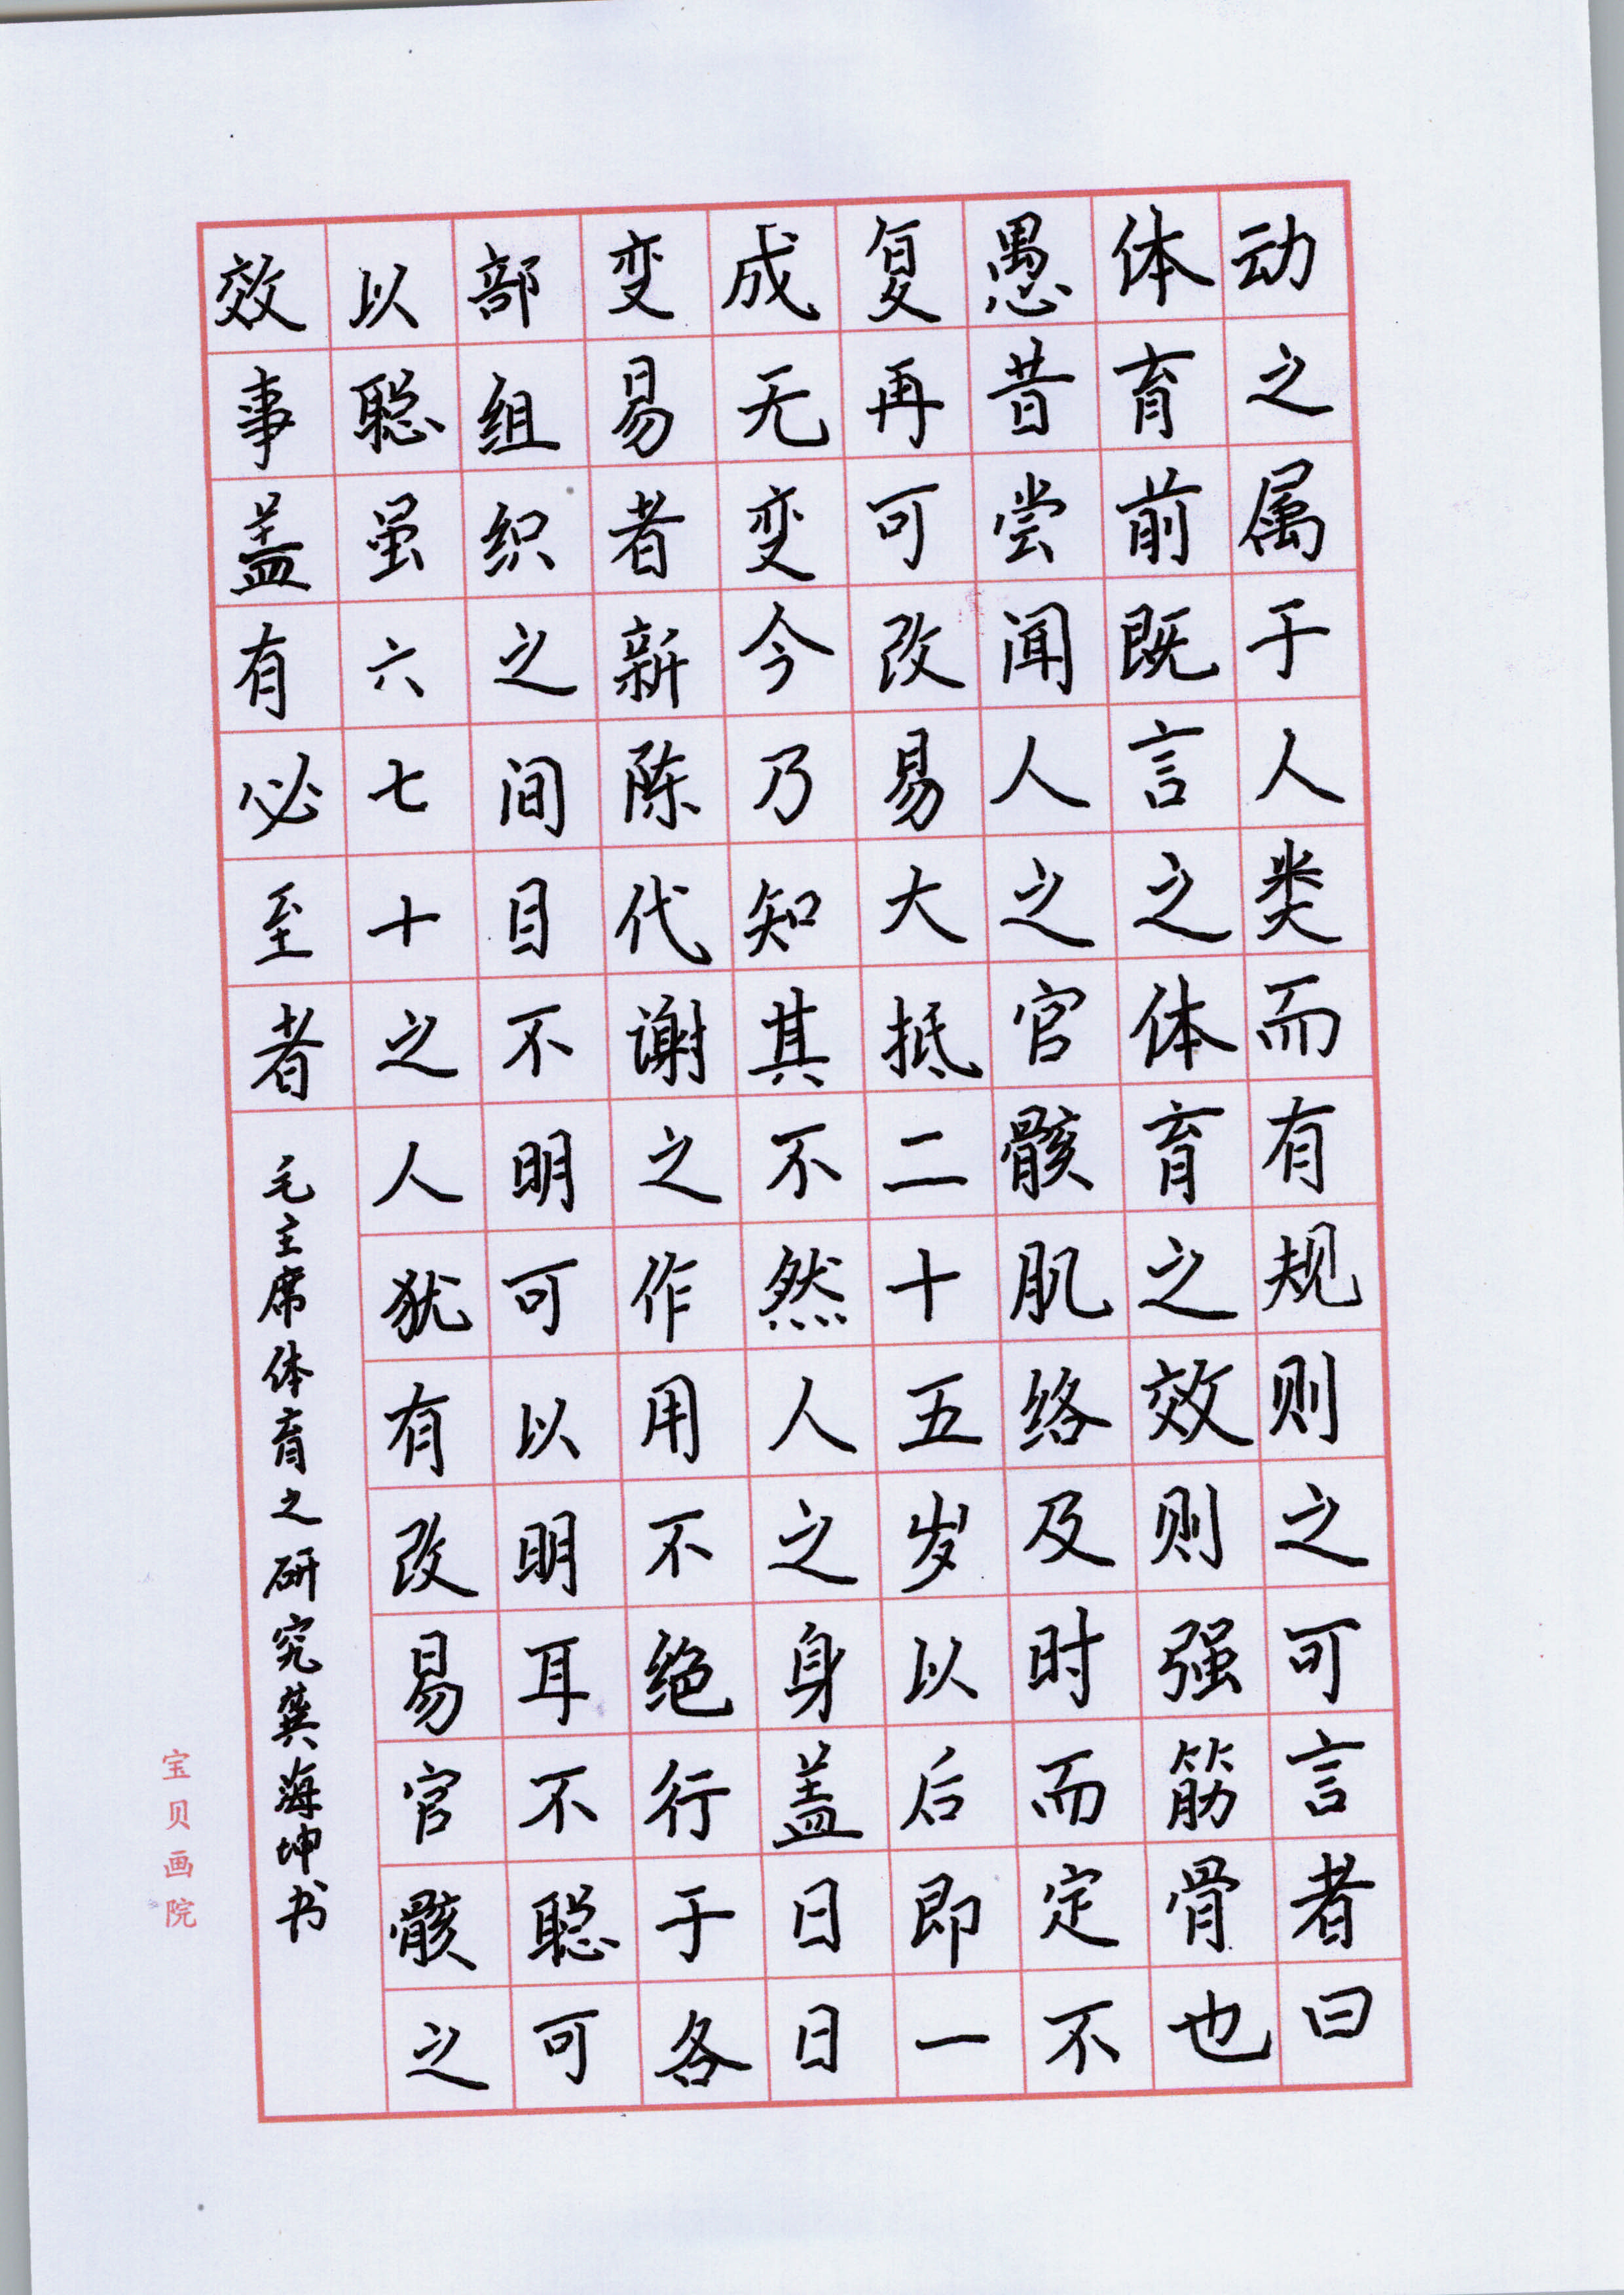 动之属于人类而有规则之可言者曰
体育前既言之体育之效则强筋骨也
愚昔尝闻人之官骸肌络及时而定不
复再可改易大抵二十五岁以后即一
成无变今乃知其不然人之身盖日日
变易者新陈代谢之作用不绝行于各
部组织之间目不明可以明耳不聪可
以聪虽六七十之人犹有改易官骸之
效事盖有必至者
毛主席体育之研究龚海坤书
宝贝画院